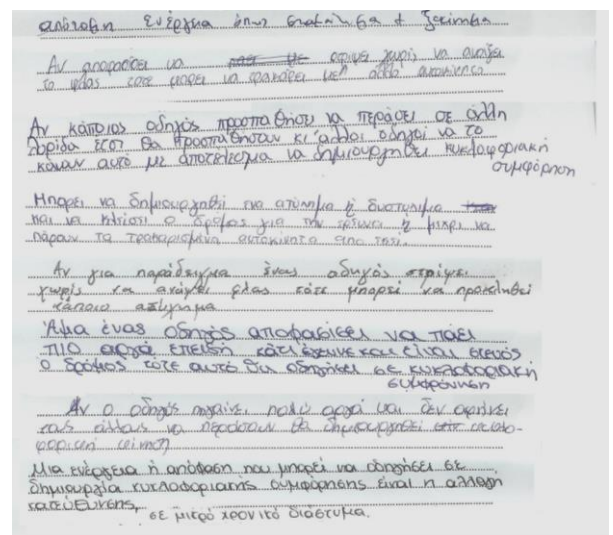 απότομη ενέργεια όπως σταμάτημα ή ξεκίνημα
Αν αποφασίσει να στρίψει χωρίς να ανάψει
το φλας τότε μπορεί να τρακάρει με άλλο αυτοκίνητο
Αν κάποιος οδηγός προσπαθήσει να περάσει σε άλλη
λωρίδα έτσι θα προσπαθήσουν κι άλλοι οδηγοί να το
κάνουν αυτό με αποτέλεσμα να δημιουργηθεί κυκλοφοριακή
συμφόρηση
Μπορεί να δημιουργηθεί ένα ατύχημα ή δυστύχημα
και να κλείσει ο δρόμος για την τρέχουσα ή μέχρι να
πάρουν τα τρακαρισμένα αυτοκίνητα από εκεί.
Αν για παράδειγμα ένας οδηγός στρίψει
χωρίς να ανάψει φλας τότε μπορεί να προκληθεί
κάποιο ατύχημα
Άμα ένας οδηγός αποφασίσει να πάει
πιο αργά επειδή κάτι έγινε και είναι στενός
ο δρόμος τότε αυτό θα οδηγήσει σε κυκλοφοριακή
συμφρόνηση
Αν ο οδηγός πηγαίνει πολύ αργά και δεν αφήνει
τους άλλους να περάσουν θα δημιουργηθεί κυκλο-
φοριακή κίνηση
Μια ενέργεια ή απόφαση που μπορεί να οδηγήσει σε
δημιουργία κυκλοφοριακής συμφόρησης είναι η αλλαγή
κατεύθυνσης,
σε μικρό χρονικό διάστυμα.